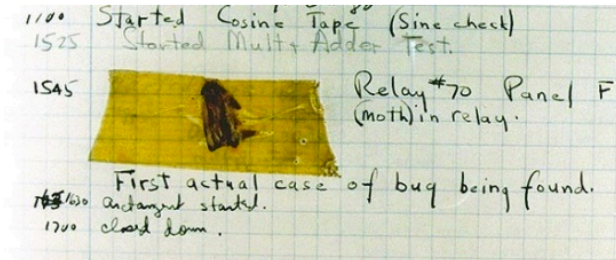 1100 Started Cosine Tape (Sine check)
1525 Started Mult+ Adder Test.
1545 Relay #70 Panel F
(moth) in relay.
First actual case of bug being found.
1630 antangent started.
1700 closed down.